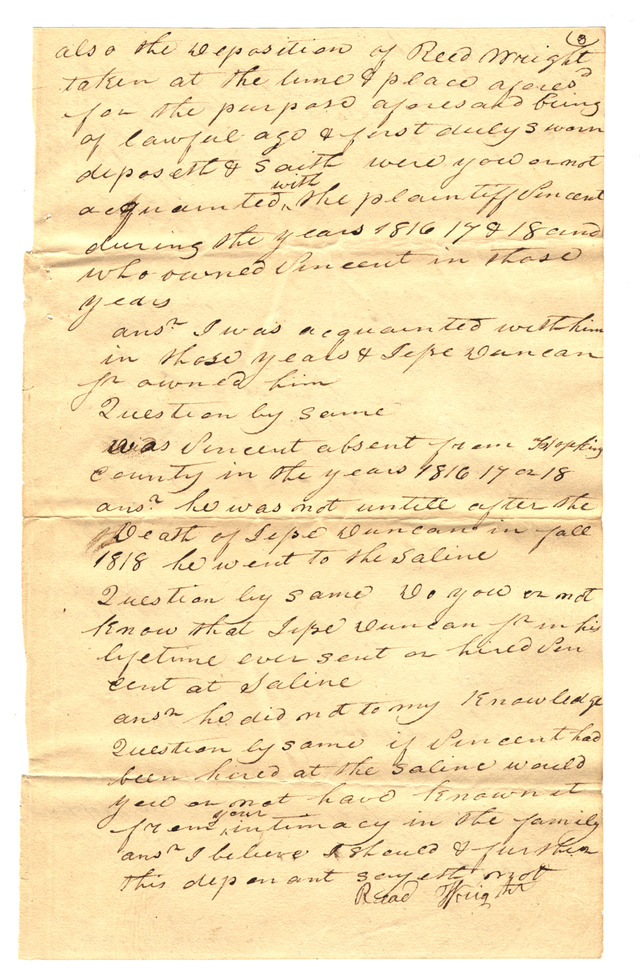 (3
also the Deposition of Reed Wright
taken at the time & place aforesd
for the purpose aforesaid being
of lawful age & first duly sworn
deposeth & Saith were you or not
with
acquainted ^ the plaintiff Vincent
during the years 1816 17 & 18 and
who owned Vincent in those
years
ansr I was acquainted with him
in those years & Jesse Duncan
sr owned him
Question by same
was Vincent absent from Hopkins
County in the years 1816 17 or 18
ansr he was not untill after the
Death of Jesse Duncan in fall
1818 he went to the Saline
Question by same Do you or not
Know that Jesse Duncan sr in his
lifetime ever sent or hired Vin
cent at Saline
ansr he did not to my Knowledge
Question by same if Vincent had
been hired at the Saline would
you or not have Known it
your
from ^ intimacy in the family
ansr I believe I should & further
this deponant sayeth not
Read Wright